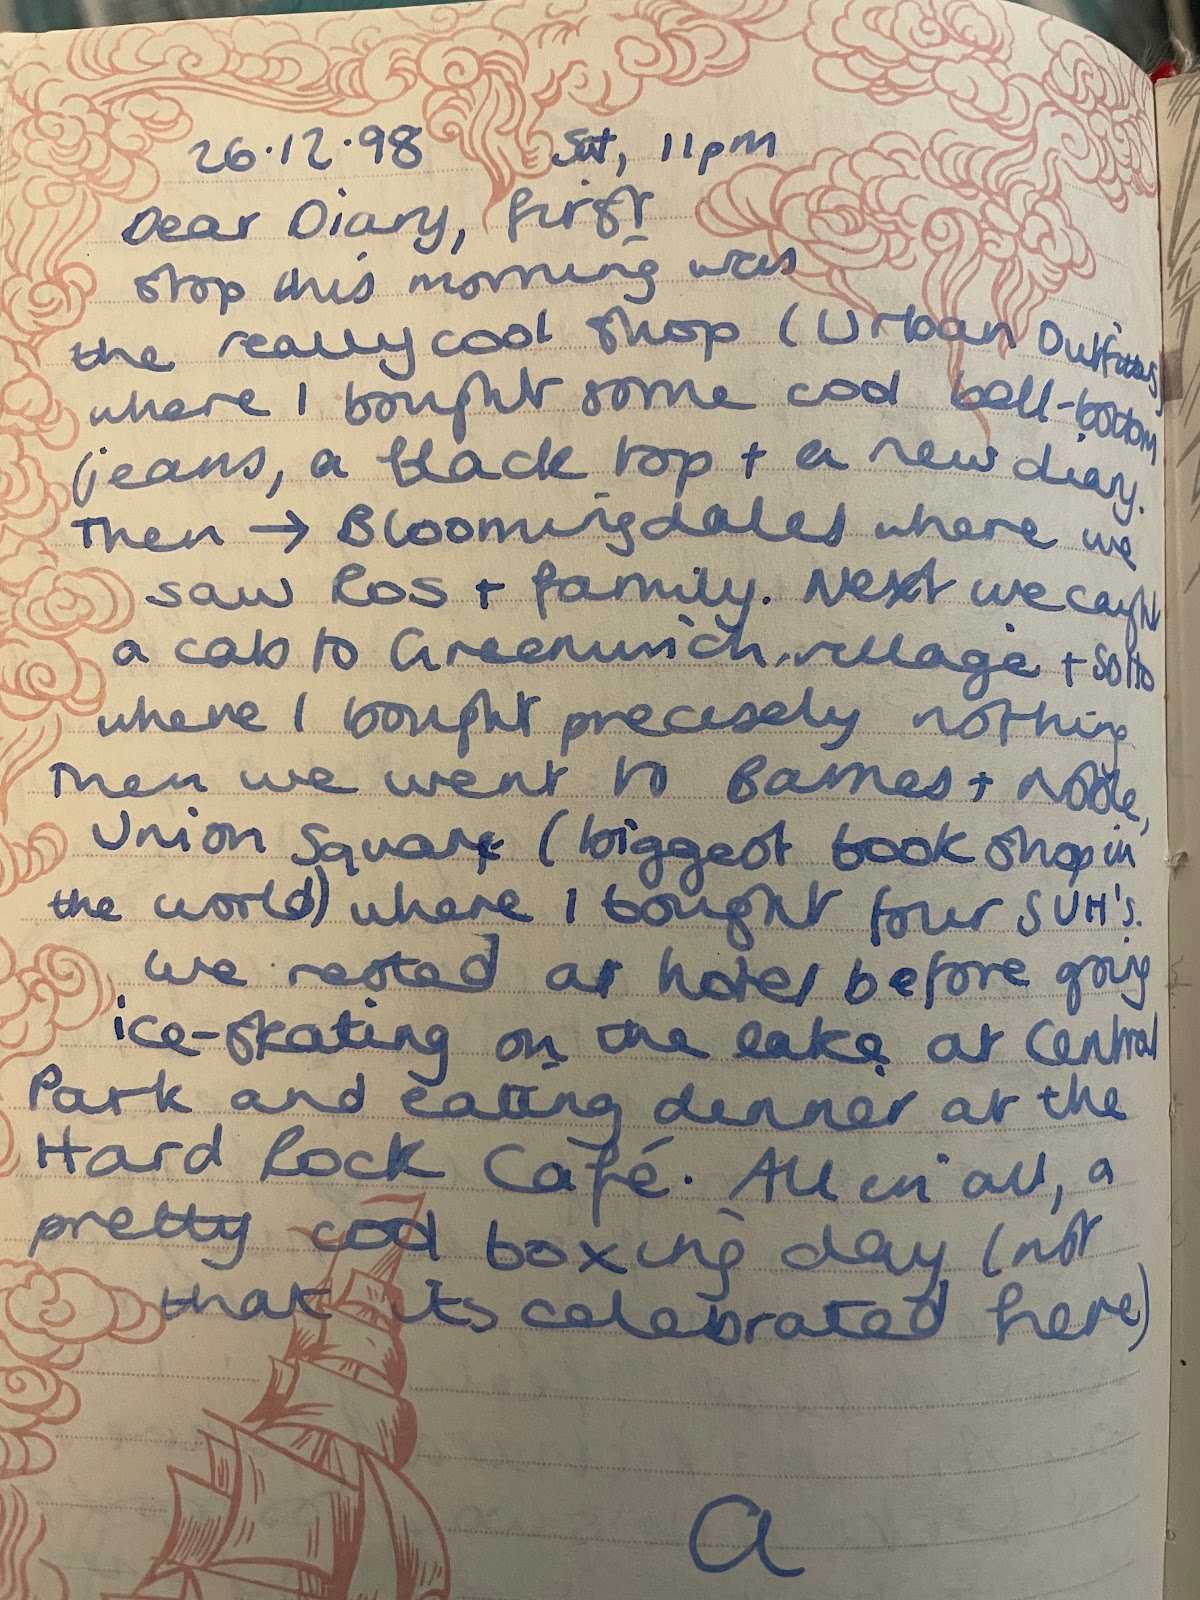 26.12.98 Sat, 11pm
Dear Diary, first
stop this morning was
the really cool shop (Urban Outfitters)
where I bought some cool bell-bottom
jeans, a black top + a new diary.
Then → Bloomingdales where we
saw Ros + family. Next we caught
a cab to Greenwich village + SoHo
where I bought precisely nothing
Then we went to Barnes + Noble,
Union Square (biggest book shop in
the world) where I bought four SVH's.
We rested at hotel before going
ice-skating on the lake at Central
Park and eating dinner at the
Hard Rock Café. All in all, a
pretty cool boxing day (not
that its celebrated here)
a